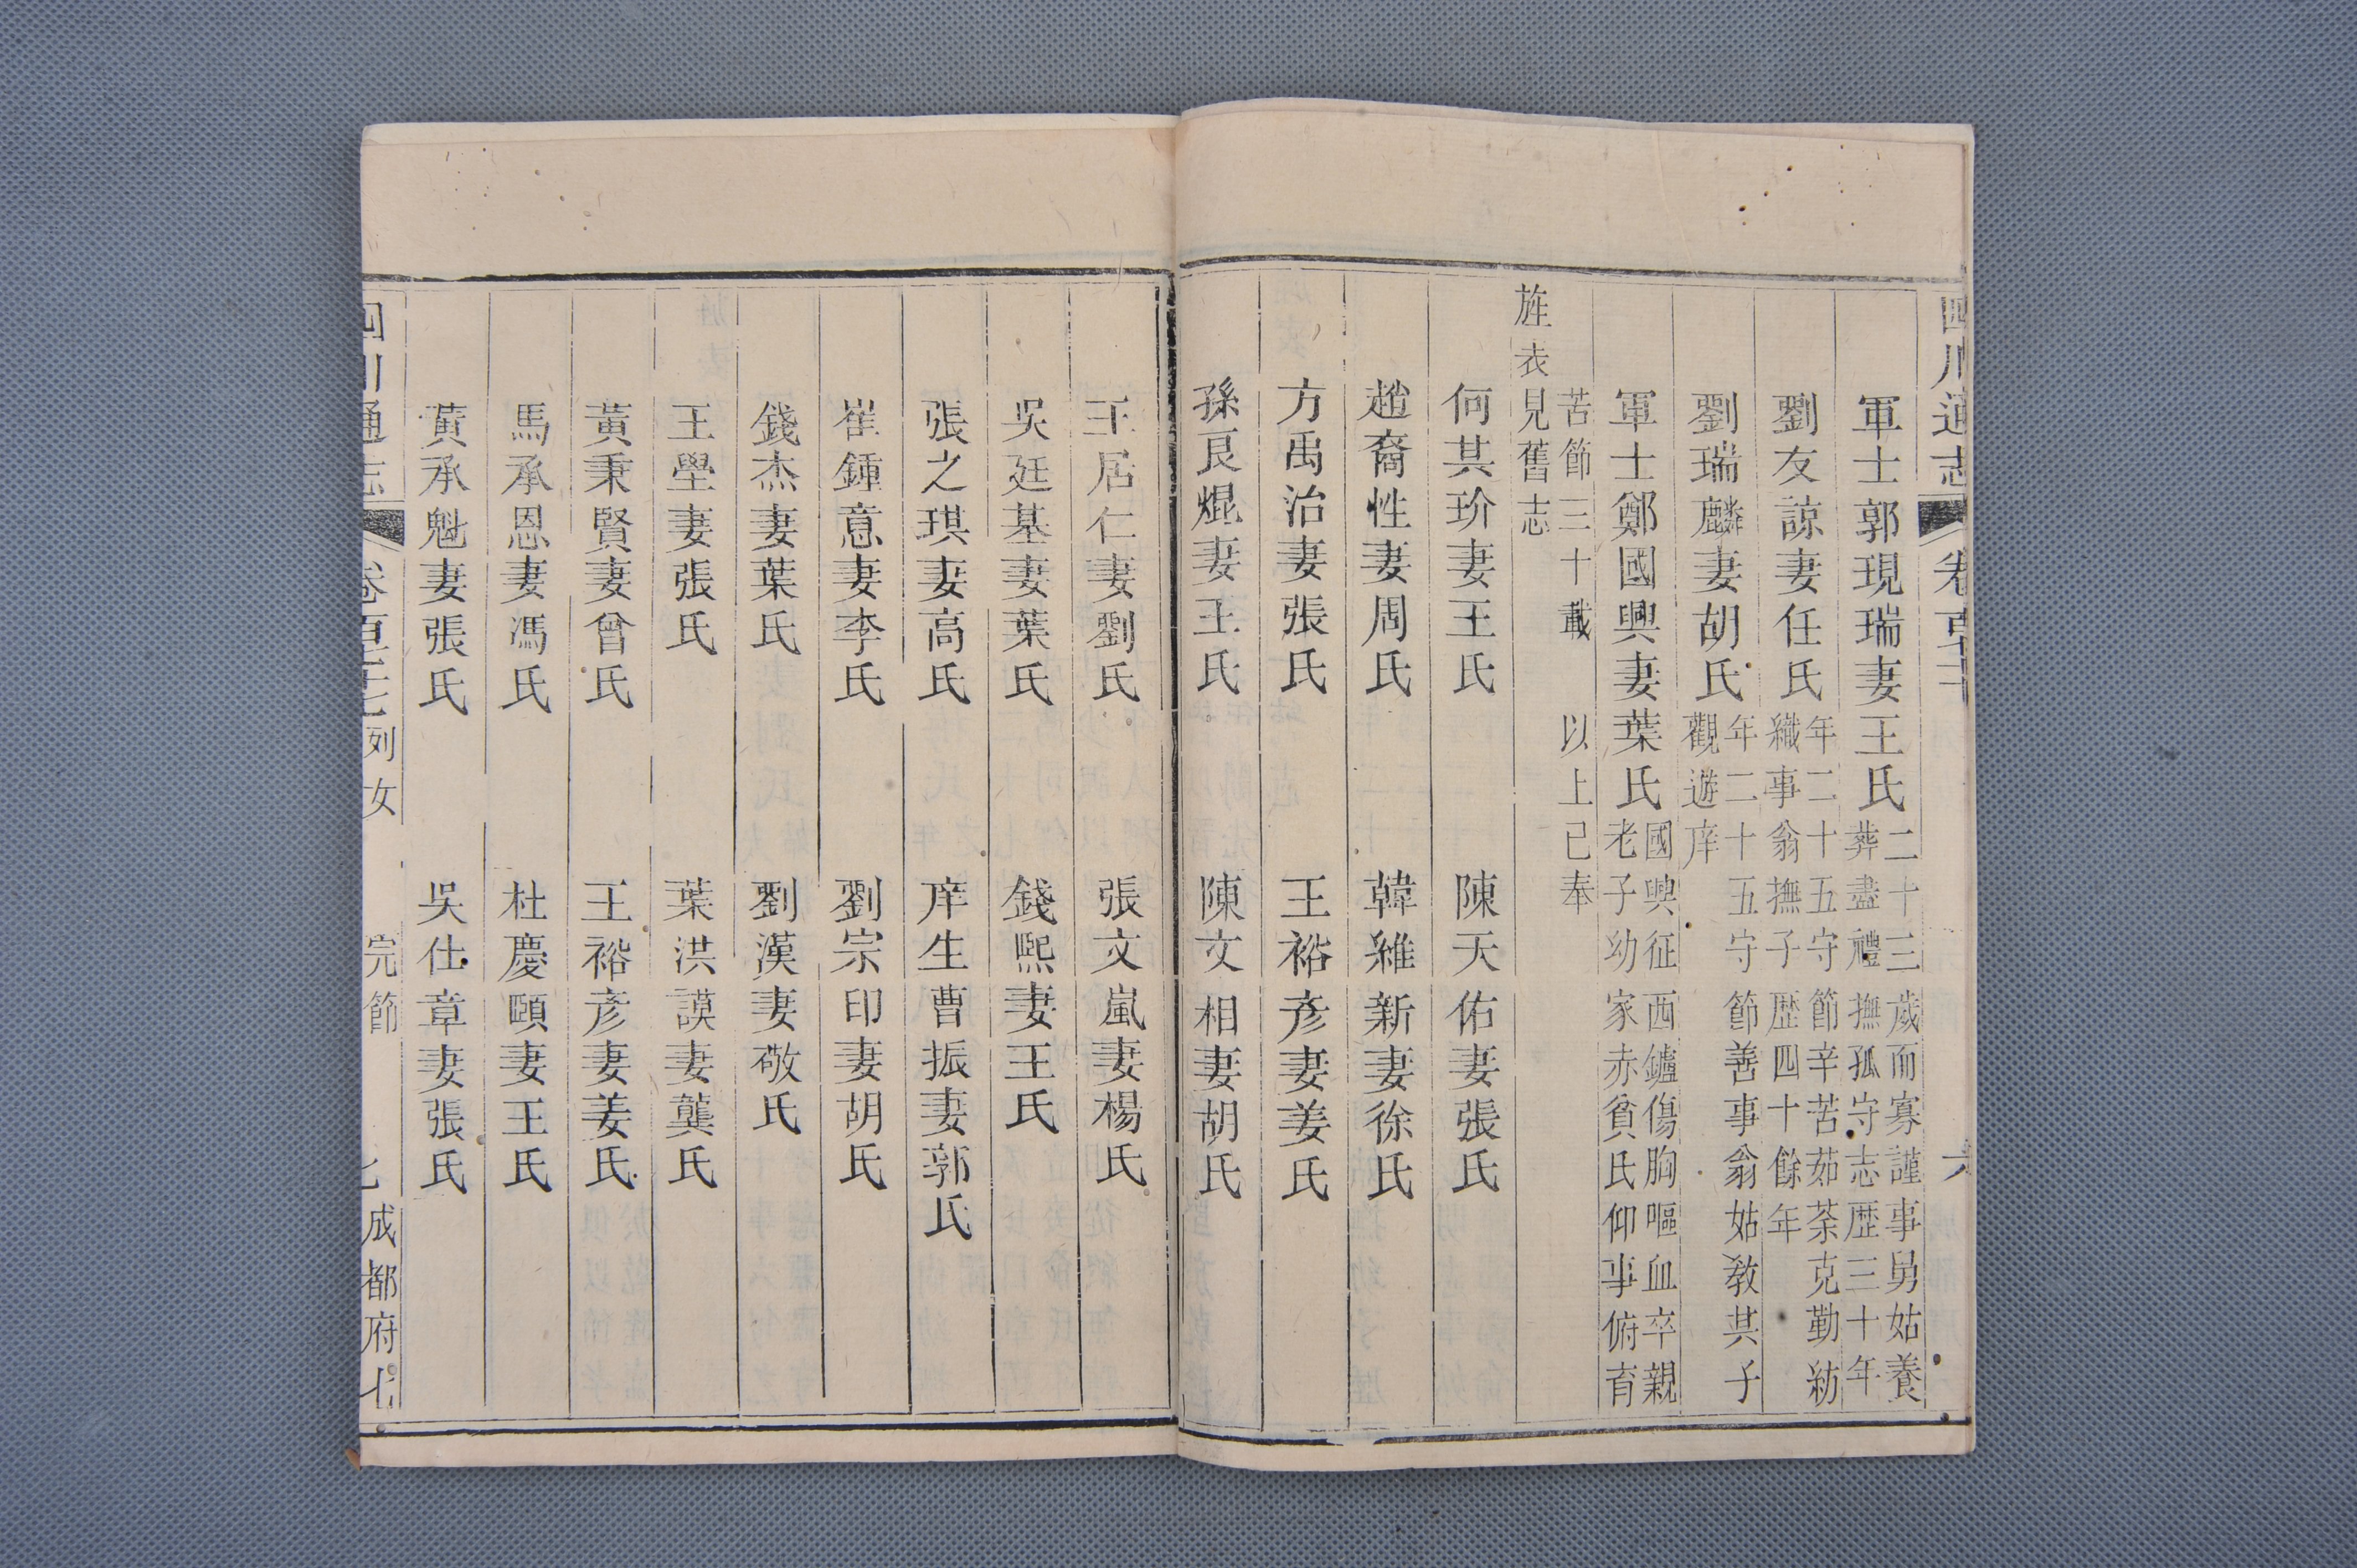 四川通志 卷百
軍士郭現瑞妻王氏 二十三歲而寡謹事舅姑養
葬盡禮撫孤守志歷三十年
劉友諒妻任氏 年二十五守節辛苦茹荼克勤紡
織事翁撫子歷四十餘年
劉瑞麟妻胡氏 年二十五守節善事翁姑教其子
觀遊庠
軍士鄭國興妻葉氏 國興征西鑪傷胸嘔血卒親
老子幼家赤貧氏仰事俯育
苦節三十載 以上已奉
旌表見舊志
何其玠妻王氏 陳天佑妻張氏
趙裔性妻周氏 韓維新妻徐氏
方禹治妻張氏 王裕彥妻姜氏
孫良焜妻王氏 陳文相妻胡氏
王居仁妻劉氏 張文嵐妻楊氏
吳廷基妻葉氏 錢熙妻王氏
張之琪妻高氏 庠生曹振妻郭氏
崔鍾意妻李氏 劉宗印妻胡氏
錢杰妻葉氏 劉漢妻敬氏
王壆妻張氏 葉洪謨妻龔氏
黃秉賢妻曾氏 王裕彥妻姜氏
馬承恩妻馮氏 杜慶頤妻王氏
黃承魁妻張氏 吳仕章妻張氏
四川通志 卷百 列女 完節 七 成都府七